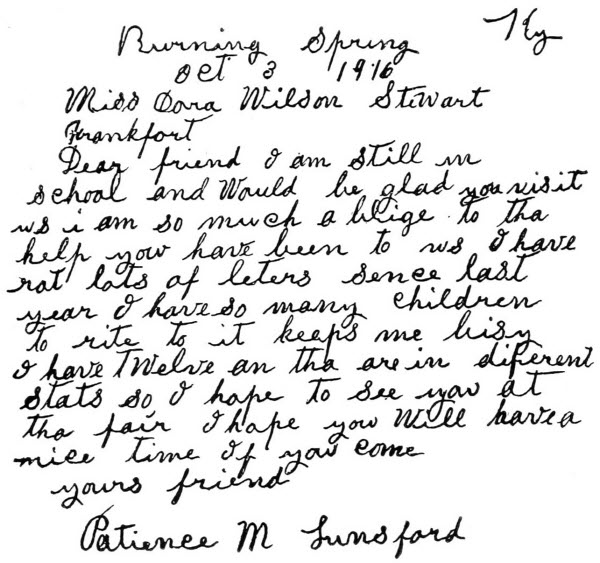 Burning Spring Ky
Oct 3 1916
Miss Cora Wilson Stewart
Frankfort
Dear friend I am still in
school and Would be glad you visit
us i am so much a blige to tha
help yow have been to us I have
rot lots of leters sence last
year I have so many children
to rite to it keeps me bisy
I have Twelve an tha are in diferent
stats so I hope to see yow at
tha fair I hope you Will have a
nice time If yow come
yours friend
Patience M Lunsford